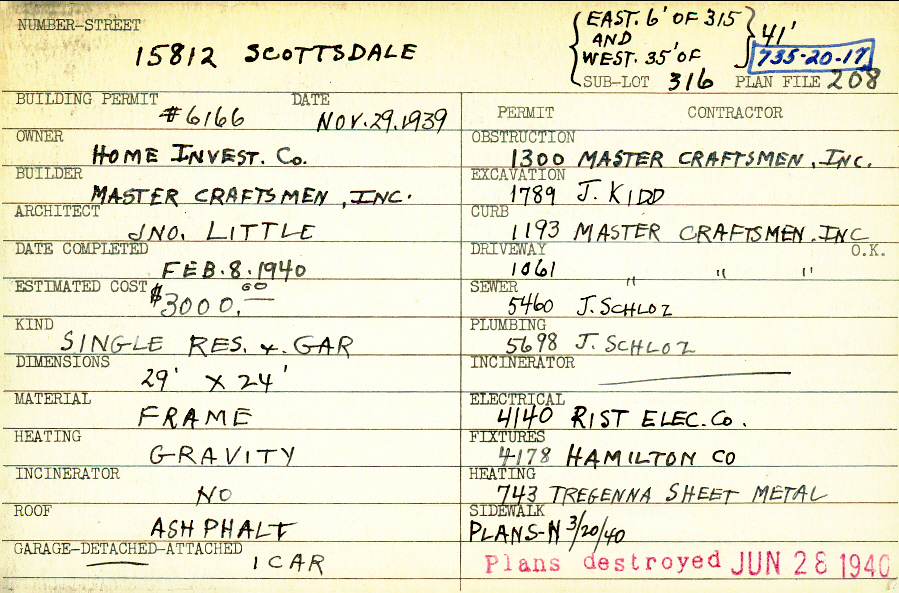 NUMBER-STREET
15812 SCOTTSDALE
EAST. 6' OF 315
AND
WEST. 35' OF
SUB-LOT 316
41'
735-20-17
PLAN FILE 208
BUILDING PERMIT #6166 DATE NOV. 29. 1939
OWNER
HOME INVEST. CO.
BUILDER
MASTER CRAFTSMEN, INC.
ARCHITECT
JNO. LITTLE
DATE COMPLETED
FEB. 8. 1940
ESTIMATED COST
$3000.00
KIND
SINGLE RES. & GAR
DIMENSIONS
29' X 24'
MATERIAL
FRAME
HEATING
GRAVITY
INCINERATOR
NO
ROOF
ASHPHALT
GARAGE-DETACHED-ATTACHED
1 CAR
PERMIT CONTRACTOR
OBSTRUCTION
1300 MASTER CRAFTSMEN, INC.
EXCAVATION
1789 J. KIDD
CURB
1193 MASTER CRAFTSMEN. INC
DRIVEWAY O.K.
1061 " " "
SEWER
5460 J. SCHLOZ
PLUMBING
5698 J. SCHLOZ
INCINERATOR
ELECTRICAL
4140 RIST ELEC. CO.
FIXTURES
4178 HAMILTON CO
HEATING
743 TREGENNA SHEET METAL
SIDEWALK
PLANS-N 3/20/40
Plans destroyed JUN 28 1940